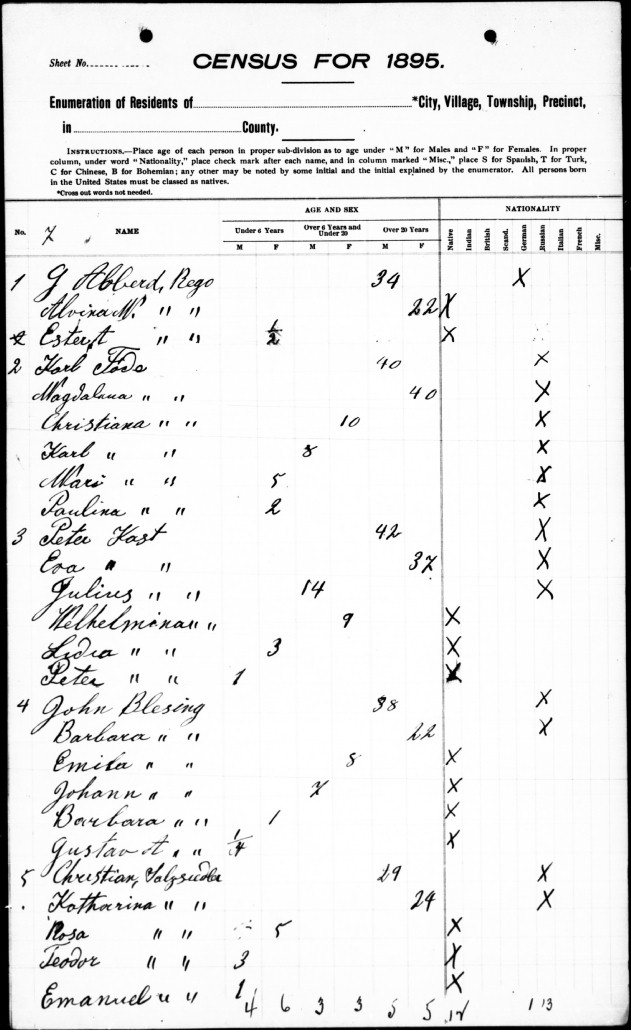 Sheet No.
CENSUS FOR 1895.
Enumeration of Residents of *City, Village, Township, Precinct,
in County.
INSTRUCTIONS.—Place age of each person in proper sub-division as to age under "M" for Males and "F" for Females. In proper
column, under word "Nationality," place check mark after each name, and in column marked "Misc.," place S for Spanish, T for Turk,
C for Chinese, B for Bohemian; any other may be noted by some initial and the initial explained by the enumerator. All persons born
in the United States must be classed as natives.
*Cross out words not needed.
AGE AND SEX NATIONALITY
No. 7 NAME Under 6 Years Over 6 Years and Under 20 Over 20 Years Native Indian British Scand. German Russian Italian French Misc.
M F M F M F
1 G Abberd, Rego 34 X
Alvina M. " " 22 X
Ester A " " 1/2 X
2 Karl Fode 40 X
Magdalena " " 40 X
Christiana " " 10 X
Karl " " 8 X
Mari " " 5 X
Paulina " " 2 X
3 Peter Kast 42 X
Eva " " 37 X
Julius " " 14 X
Welhelmina " " 9 X
Lidia " " 3 X
Peter " " 1 X
4 John Blesing 38 X
Barbara " " 22 X
Emila " " 8 X
Johann " " 7 X
Barbara " " 1 X
Gustav A " " 1/4 X
5 Christian, 29 X
Katharina " " 24 X
Rosa " " 5 X
Teodor " " 3 X
Emanuel " " 1 X
4 6 3 3 5 5 12 1 13